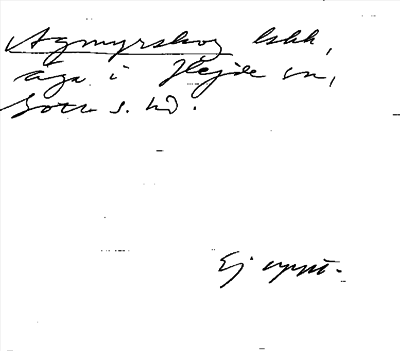 Agmyrskog
äga i Hejde sn,
Gotl s. hd.
Ej uppt.